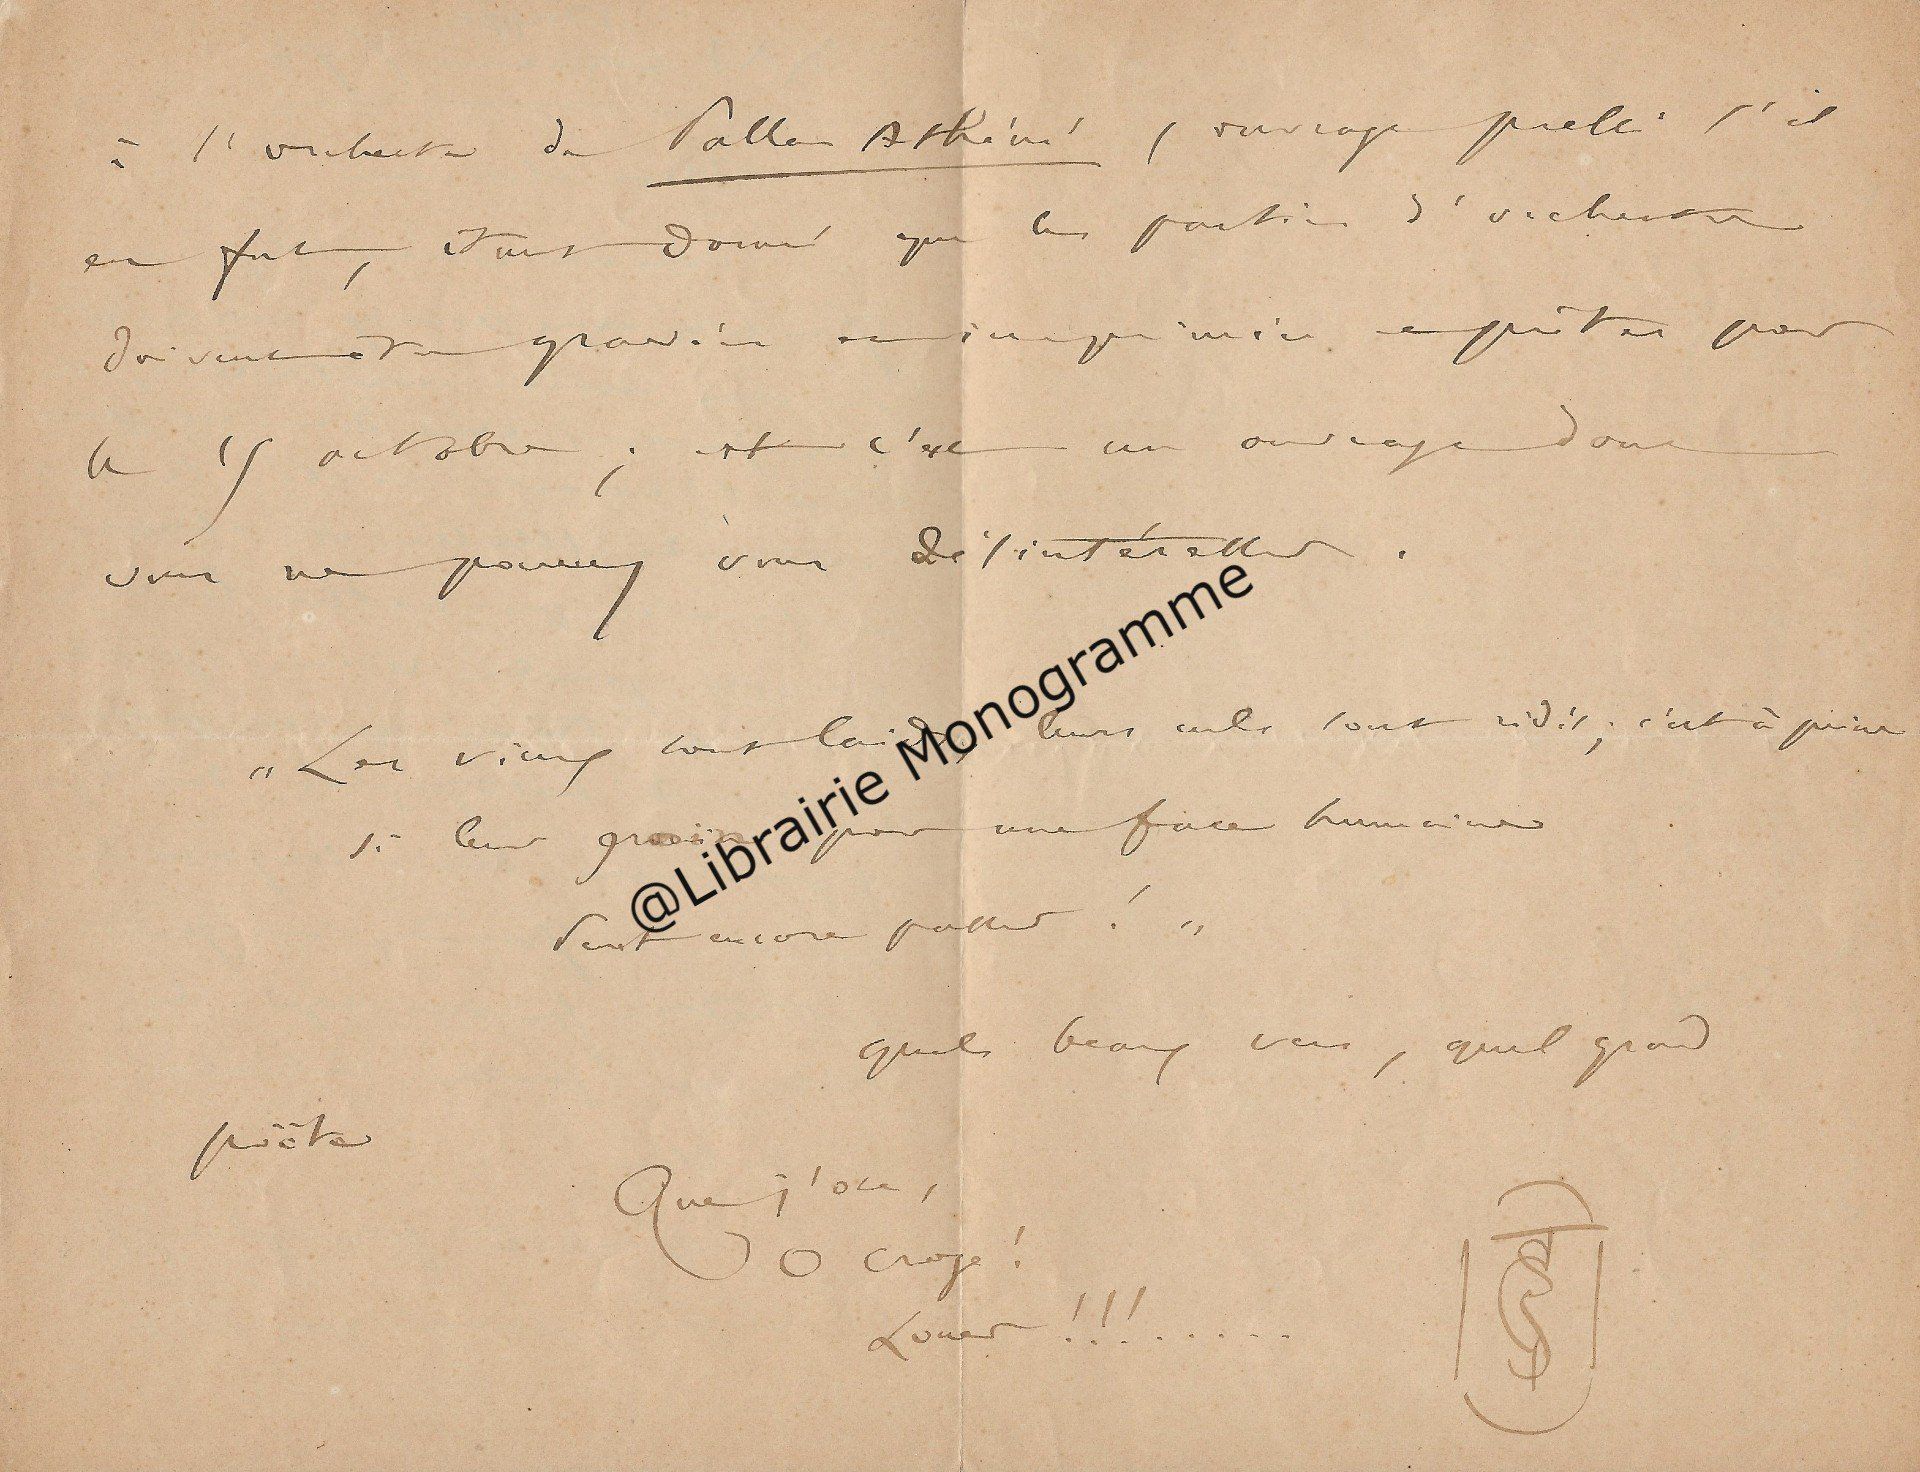 à l'orchestre de Pallas Athéné, ouvrage pressé s'il
en fut, étant donné que les parties d'orchestre
doivent être gravées et imprimées et prêtes pour
le 15 octobre ; et c'est un ouvrage dont
vous ne pouvez vous désintéresser.
„Les vieux sont laids, leurs culs sont ridés ; c'est à peine
si leur groin pour une face humaine
Peut encore passer ! „
quels beaux vers, quel grand
poëte
Que j'ose,
O Croze !
Louer !!!.......
@Librairie Monogramme